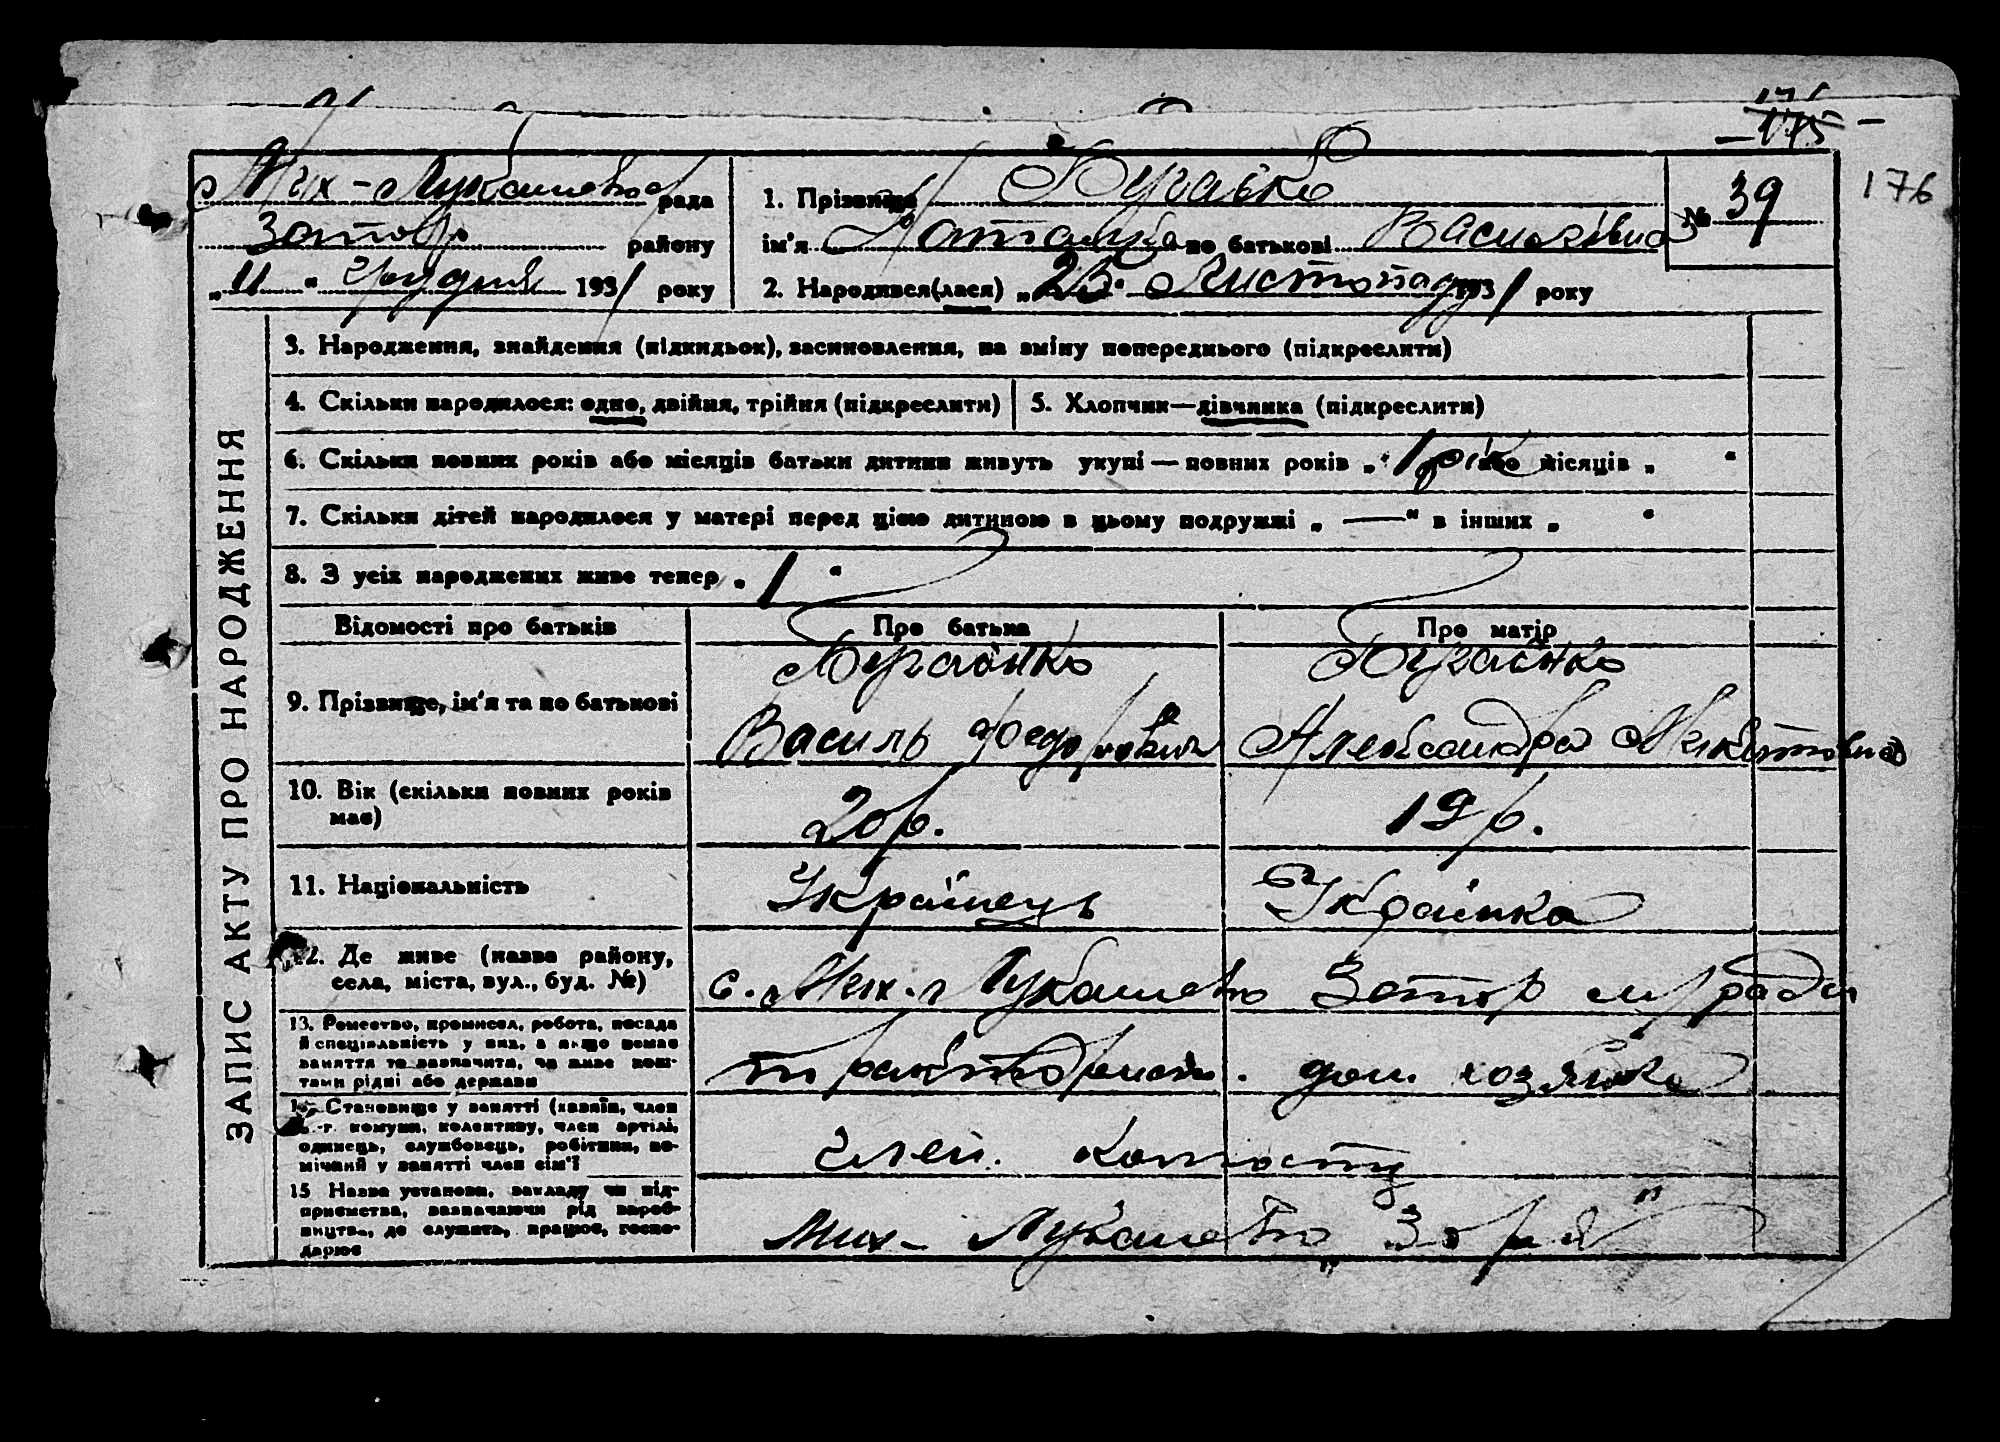 175
176
Мих-Лукашево рада
району
„11“ грудня 1931 року
1. Прізвище
ім'я Наталка по батькові Василівна
2. Народився(лася) „25“ Листопаду 1931 року
№ 39
ЗАПИС АКТУ ПРО НАРОДЖЕННЯ
3. Народження, знайдення (підкидьок), засиновлення, на зміну попереднього (підкреслити)
4. Скільки народилося: одно, двійня, трійня (підкреслити)
5. Хлопчик—дівчинка (підкреслити)
6. Скільки повних років або місяців батьки дитини живуть укупі — повних років „1 рік або місяців „ “
7. Скільки дітей народилося у матері перед цією дитиною в цьому подружжі „ — “ в інших „ “
8. З усіх народжених живе тепер „1“
Відомості про батьків
Про батька
Про матір
9. Прізвище, ім'я та по батькові
Василь Федорович
Александра Микитовна
10. Вік (скільки повних років має)
20 р.
19 р.
11. Національність
Українець
Українка
12. Де живе (назва району,
села, міста, вул., буд. №)
с. Мих-Лукашево
13. Ремество, промисел, робота, посада
й спеціяльність у них, а якщо немає
заняття то зазначити, чи живе кош-
тами рідні або держави
дом хозяйка
14. Становище у занятті (хазяїн, член
с.-г. комуни, колективу, член артілі,
одинець, службовець, робітник, по-
мічний у занятті член сім'ї
член.
15 Назва установи, закладу чи під-
приємства, зазначаючи рід вироб-
ництва, де служить, працює, госпо-
дарює
Мих-Лукашево „Зоря“